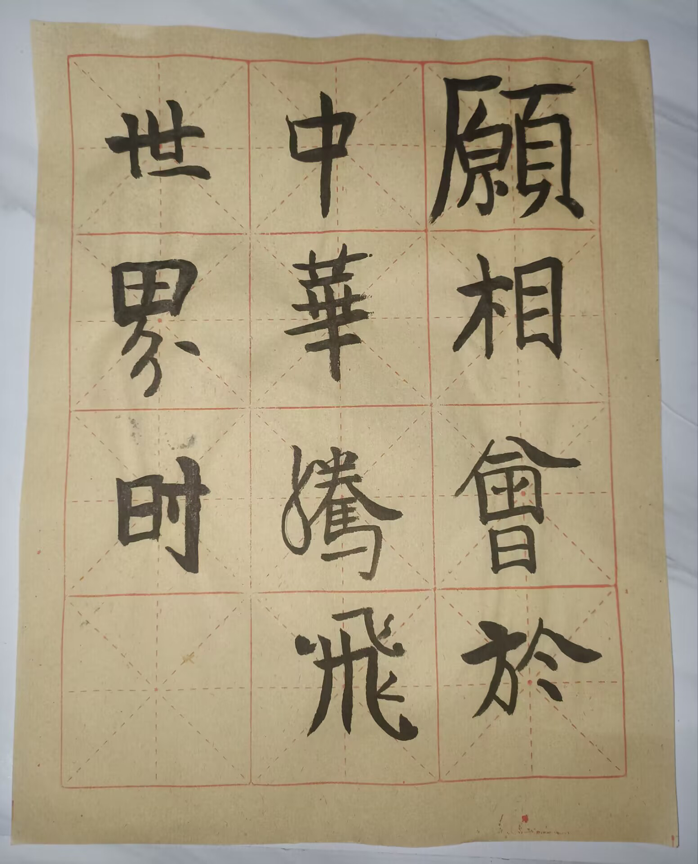 願相會於
中華騰飛
世界时